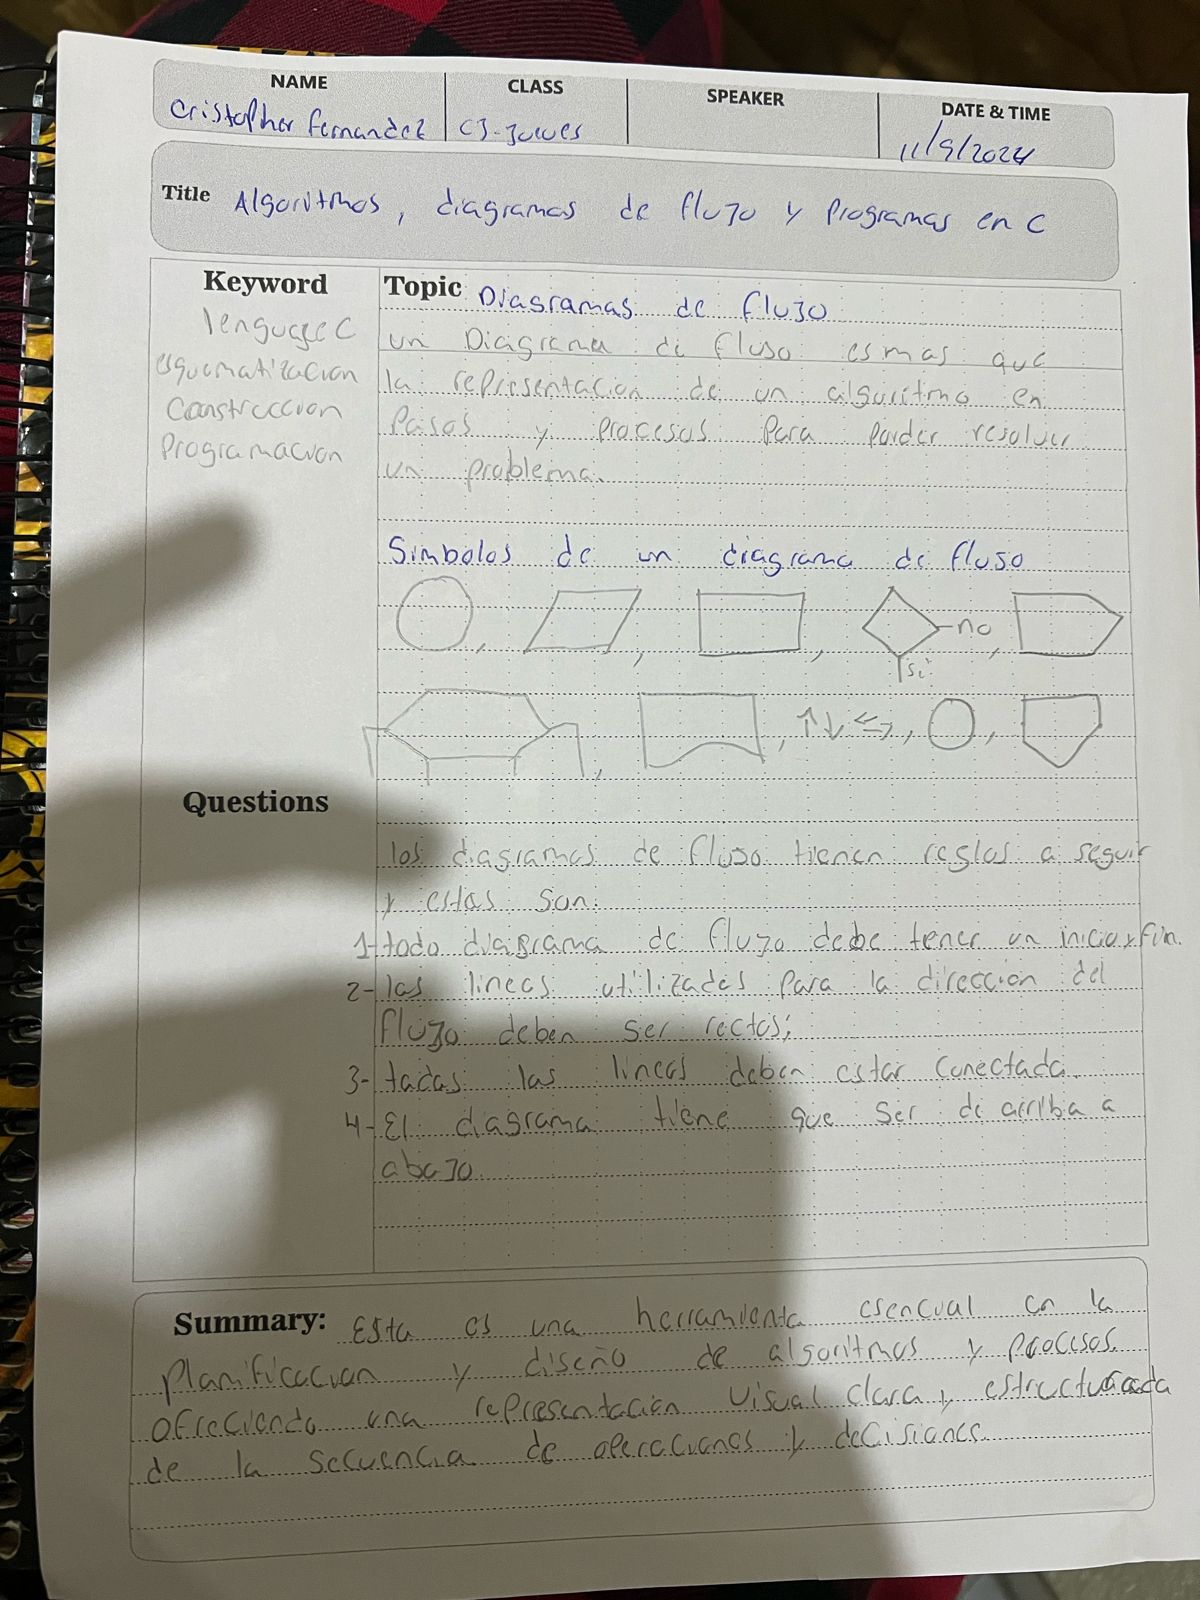 NAME
CLASS
SPEAKER
DATE & TIME
Cristofher Fernandez
C3-Jueves
11/9/2024
Title Algoritmos, diagramas de flujo y Programas en C
Keyword
lenguaje C
esquematizacion
Construccion
Programacion
Topic Diagramas de flujo
un Diagrama de flujo es mas que
la representacion de un algoritmo en
Pasos y procesos Para poder resolver
un problema.
Simbolos de un diagrama de flujo
no
si
Questions
los diagramas de flujo tienen reglas a seguir
y estas son:
1- todo diagrama de flujo debe tener un inicio y fin.
2- las lineas utilizadas para la direccion del
flujo deben ser rectas;
3- todas las lineas deben estar conectada.
4- El diagrama tiene que ser de arriba a
abajo.
Summary: Esta es una herramienta esencial en la
Planificacion y diseño de algoritmos y procesos.
ofreciendo una representación visual clara y estructurada
de la secuencia de operaciones y decisiones.